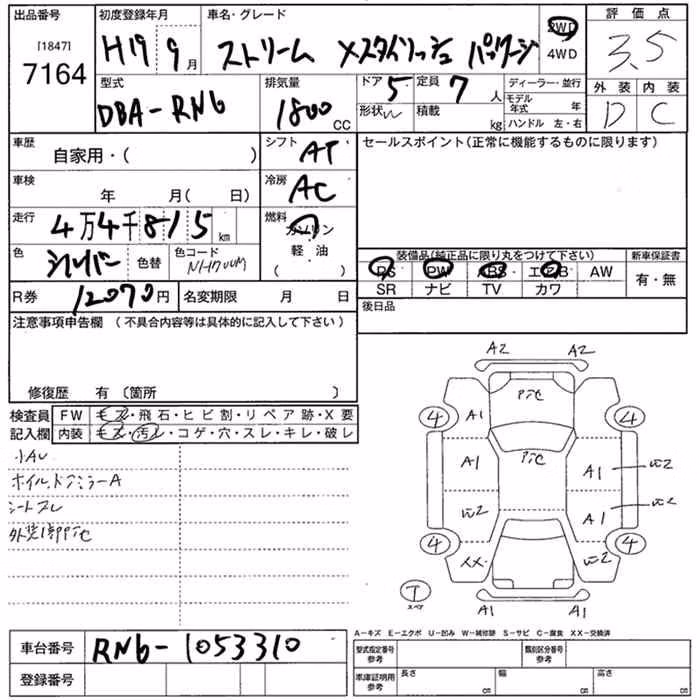 出品番号 初度登録年月 車名・グレード 評価点
[1847]
7164
H19 9月 ストリーム Xスタイリッシュ パッケージ 2WD 4WD 3.5
型式 排気量 ドア 5 定員 7人 ディーラー・並行 外装 内装
DBA-RN6 1800 CC 形状 W 積載 kg モデル年式 年 D C
ハンドル 左・右
車歴 シフト AT セールスポイント(正常に機能するものに限ります)
自家用・( )
車検 冷房 AC
年 月( 日)
走行 燃料
4万4千815km ガソリン
色 シルバー 色替 色コード NH700M 軽・油 ( )
装備品(純正品に限り丸をつけて下さい) 新車保証書
PS PW ABS エアB AW 有・無
SR ナビ TV カワ
R券 12070円 名変期限 月 日 後日品
注意事項申告欄 (不具合内容等は具体的に記入して下さい)
修復歴 有 〔箇所 〕
検査員 FW キズ・飛石・ヒビ割・リペア跡・X要
記入欄 内装 キズ・汚レ・コゲ・穴・スレ・キレ・破レ
小AU
ホイル,ドアミラーA
シートスレ
A2 A2
A1
4 4
A1 A1
A1
4 4
XX
T
スペア
A1 A1
A-キズ E-エクボ U-凹み W-補修跡 S-サビ C-腐食 XX-交換済
車台番号 RN6-1053310 型式指定番号 参考 類別区分番号 参考
登録番号 車庫証明用 参考 長さ 幅 高さ